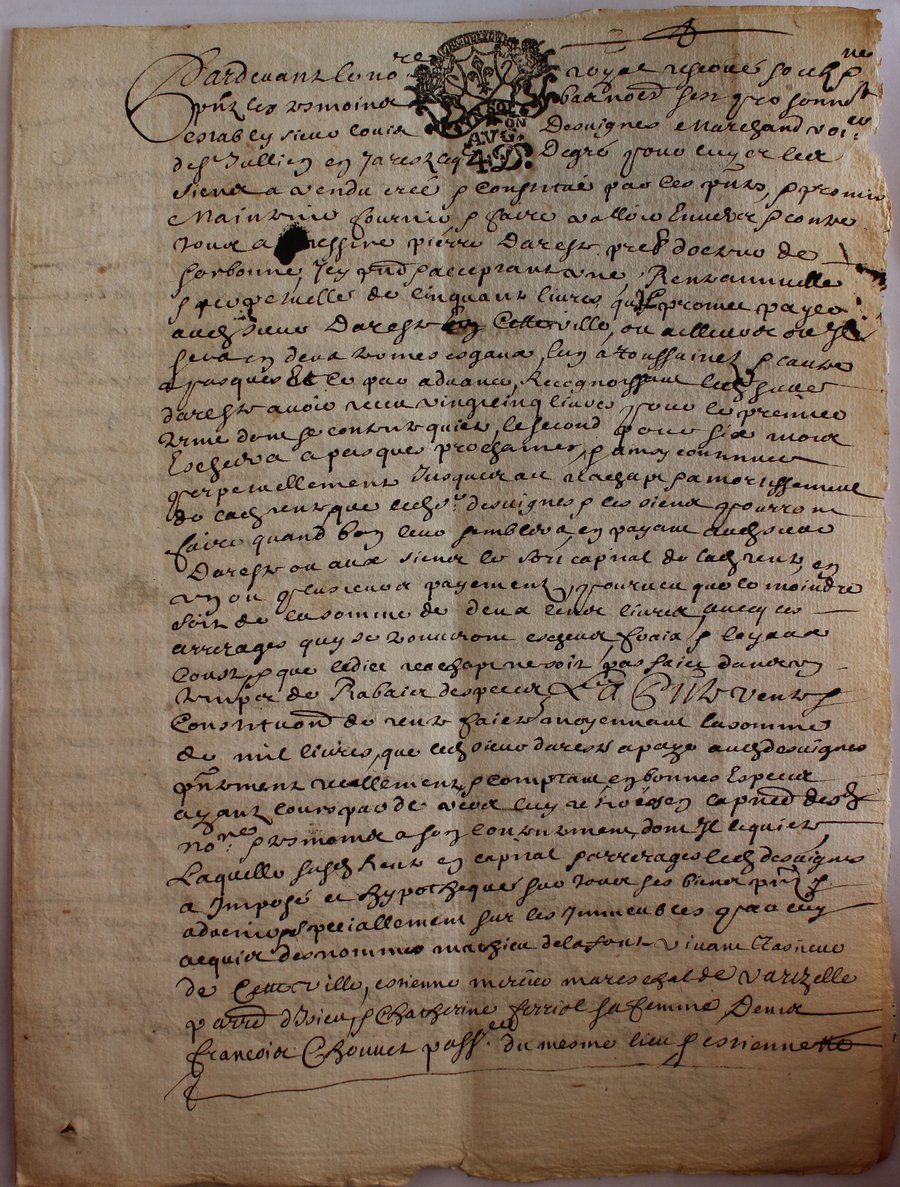 Pardevant le no.re royal reservé soubz.né
p.nt les tesmoins bas nommés sest personn.t
estably sieur Louis Desvignes Marchand
de St Jullien en Jarestz Degré pour luy et les
siens a vendu créé & constitué par les p.ntes, & promis
Maintenir fournir & faire valloir Envers & contre
tous a Messire pierre Darestz pre.bre docteur de
sorbonne, Icy p.nt & acceptant une Rente annuelle
& perpetuelle de cinquante livres, qu'il promet payer
audit sieur Darestz En Cette ville, ou ailleurs ou Il
sera en deux termes esgaux, lun a toussaincts & l'autre
a pasques Et ce par advance, Recognoissant ledit sieur
darestz avoir receu vingt cinq livres pour le premier
terme dont se contente quitte, le second pour six mois
Escherra a pasques prochaines, & ainsy continuer
perpetuellement Jusques au rachapt & amortissement
de lad. rente, que led. s.r desvignes & les siens pourront
faire quand bon leur semblera en payant aud. sieur
Darestz ou aux siens le sort capital de lad. rente en
un ou plusieurs payements, pourveu que le moindre
soit de la somme de deux cents livres avecq les
arrerages quy se trouveront escheus fraix & loyaux
cousts, & que ledict rachapt ne soit pas faict dans un
temps de Rabais despeces La p.nte vente &
Constitution de rente faicte moyennant la somme
de mil livres, que led. sieur darestz a payé aud. desvignes
p.ntement reellement & comptant en bonnes Especes
ayant cours par de
no.re & tesmoins a son contentement, dont Il le quitte
Laquelle susd. Rente en capital & arrerages led. desvignes
a Imposé et hypothequé sur tous ses biens p.nts &
advenir & speciallement sur les Immeubles par luy
acquis des nommes mathieu delafont vivant
de Cette ville, estienne mareschal de Varizelle
parr. d'Izieu, & Catherine ferriol sa femme, Denis
francois Chouvet du mesme lieu & estiennette